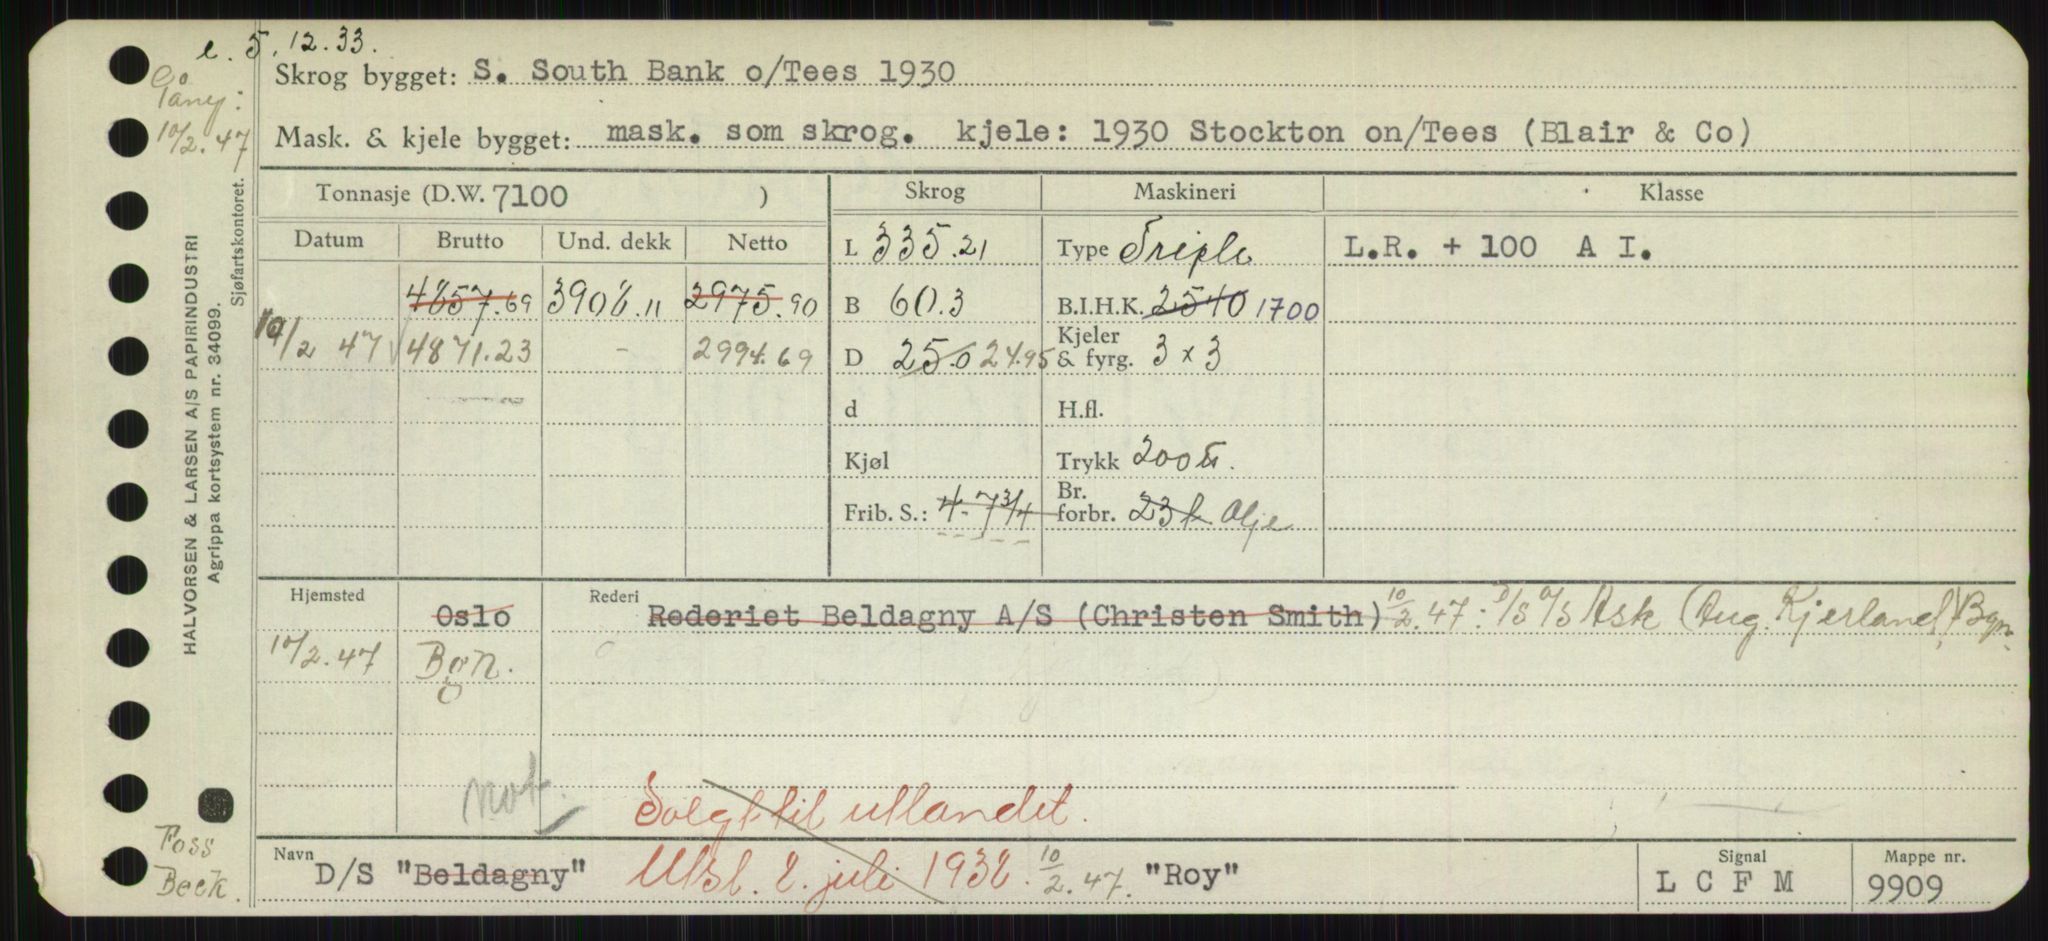 e. 5.12.33.
Skrog bygget: S. South Bank o/Tees 1930
10/2.47
Mask. & kjele bygget: mask. som skrog. kjele: 1930 Stockton on/Tees (Blair & Co)
Tonnasje (D.W. 7100 ) Skrog Maskineri Klasse
Datum Brutto Und. dekk Netto L 335.21 Type Triple L.R. + 100 A I.
4857.69 3908.11 2975.90 B 60.3 B.I.H.K. 2540 1700
10/2 47 4871.23 - 2994.69 D 25.0 24.95 Kjeler & fyrg. 3 x 3
d H.fl.
Kjøl Trykk 200
Frib. S.: 4-7 3/4 Br. forbr. 23 Olje
HALVORSEN & LARSEN A/S PAPIRINDUSTRI
Agrippa kortsystem nr. 34099.
Sjøfartskontoret.
Hjemsted Oslo Rederi Rederiet Beldagny A/S (Christen Smith) 10/2.47: D/S A/S Ask (Aug. Kjerland) Bgn.
10/2.47 Bgn.
not.
Solgt til utlandet.
Foss
Beck.
Navn D/S "Beldagny" Utsl. 8. juli 1938. 10/2.47. "Roy" Signal L C F M Mappe nr. 9909